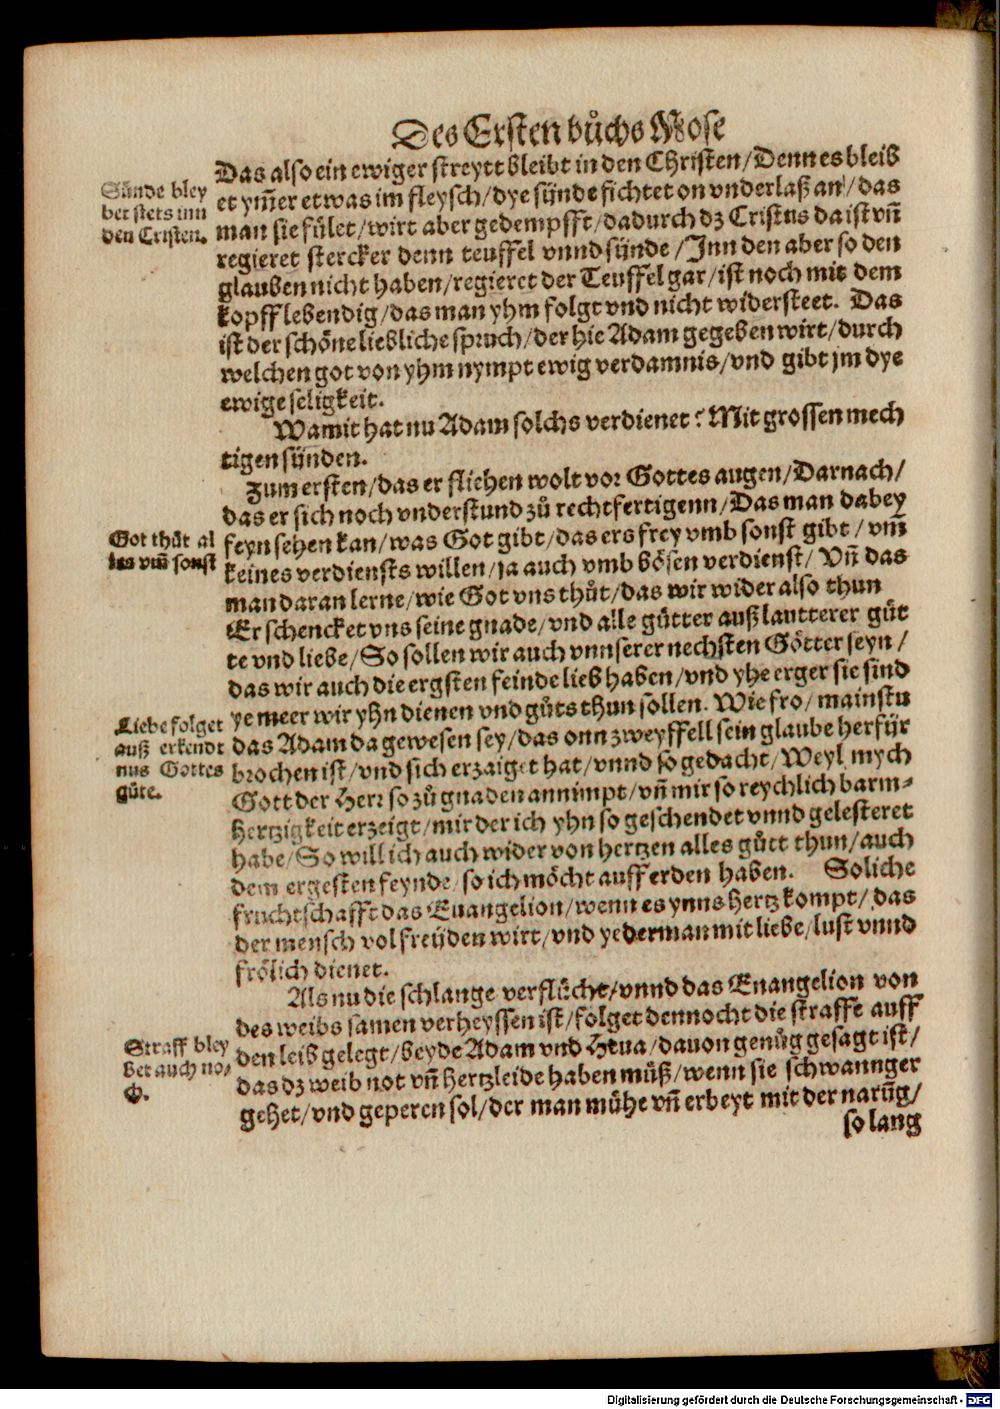 Des Ersten bůchs Mose
Das also ein ewiger streytt bleibt in den Christen/Denn es bleib
et ym̃er etwas im fleysch/dye sünde fichtet on vnderlaß an/das
man sie fület/wirt aber gedempfft/dadurch dz Cristus da ist vñ
regieret stercker denn teuffel vnnd sünde/Inn den aber so den
glauben nicht haben/regieret der Teuffel gar/ist noch mit dem
kopff lebendig/das man yhm folgt vnd nicht widersteet. Das
ist der schöne liebliche spruch/der hie Adam gegeben wirt/durch
welchen got von yhm nympt ewig verdamnis/vnd gibt jm dye
ewige seligkeit.
Sünde bley
bet stets inn
den Cristen.
Wamit hat nu Adam solchs verdienet? Mit grossen mech
tigen sünden.
Zum ersten/das er fliehen wolt vor Gottes augen/Darnach/
das er sich noch vnderstund zů rechtfertigenn/Das man dabey
feyn sehen kan/was Got gibt/das ers frey vmb sonst gibt/vm̃
keines verdiensts willen/ja auch vmb bösen verdienst/Vñ das
man daran lerne/wie Got vns thůt/das wir wider also thun
Er schencket vns seine gnade/vnd alle gütter auß lautterer güt
te vnd liebe/So sollen wir auch vnnserer nechsten Götter seyn/
das wir auch die ergsten feinde lieb haben/vnd yhe erger sie sind
ye meer wir yhn dienen vnd gůts thun sollen. Wie fro/mainstu
das Adam da gewesen sey/das onn zweyffell sein glaube herfür
brochen ist/vnd sich erzaiget hat/vnnd so gedacht/Weyl mych
Gott der Herr so zů gnaden annimpt/vñ mir so reychlich barm-
hertzigkeit erzeigt/mir der ich yhn so geschendet vnnd gelesteret
habe/So will ich auch wider von hertzen alles gůtt thun/auch
dem ergesten feynde/so ich möcht auff erden haben. Soliche
frucht schafft das Euangelion/wenn es ynns hertz kompt/das
der mensch vol freüden wirt/vnd yederman mit liebe/lust vnnd
frölich dienet.
Got thůt al
les vm̃ sonst
Liebe folget
auß erkendt
nus Gottes
güte.
Als nu die schlange verflůcht/vnnd das Euangelion von
des weibs samen verheyssen ist/folget dennocht die straffe auff
den leib gelegt/beyde Adam vnd Heua/dauon genůg gesagt ist/
das dz weib not vñ hertzleide haben můß/wenn sie schwannger
gehet/vnd geperen sol/der man mühe vñ erbeyt mit der narũg/
so lang
Straff bley
bet auch no/
Digitalisierung gefördert durch die Deutsche Forschungsgemeinschaft - DFG